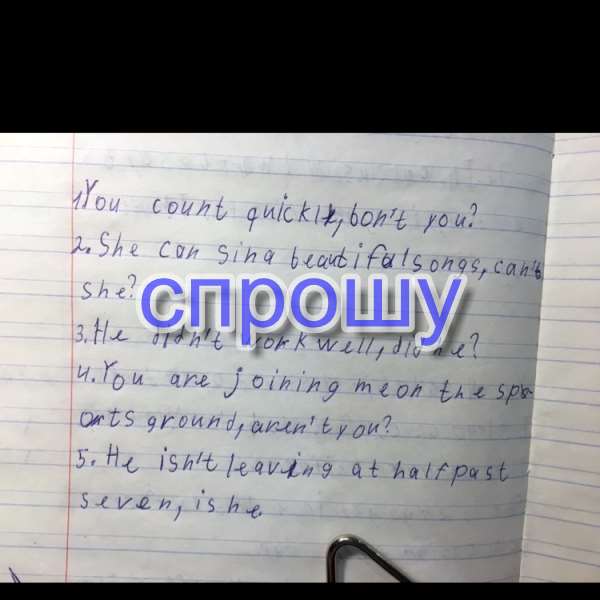 1.You count quickly, bon't you?
2. She can sing beautifal songs, can't
she?
спрошу
3. He didn't work well, did he?
4. You are joining me on the spo-
orts ground, aren't you?
5. He isn't leaving at half past
seven, is he